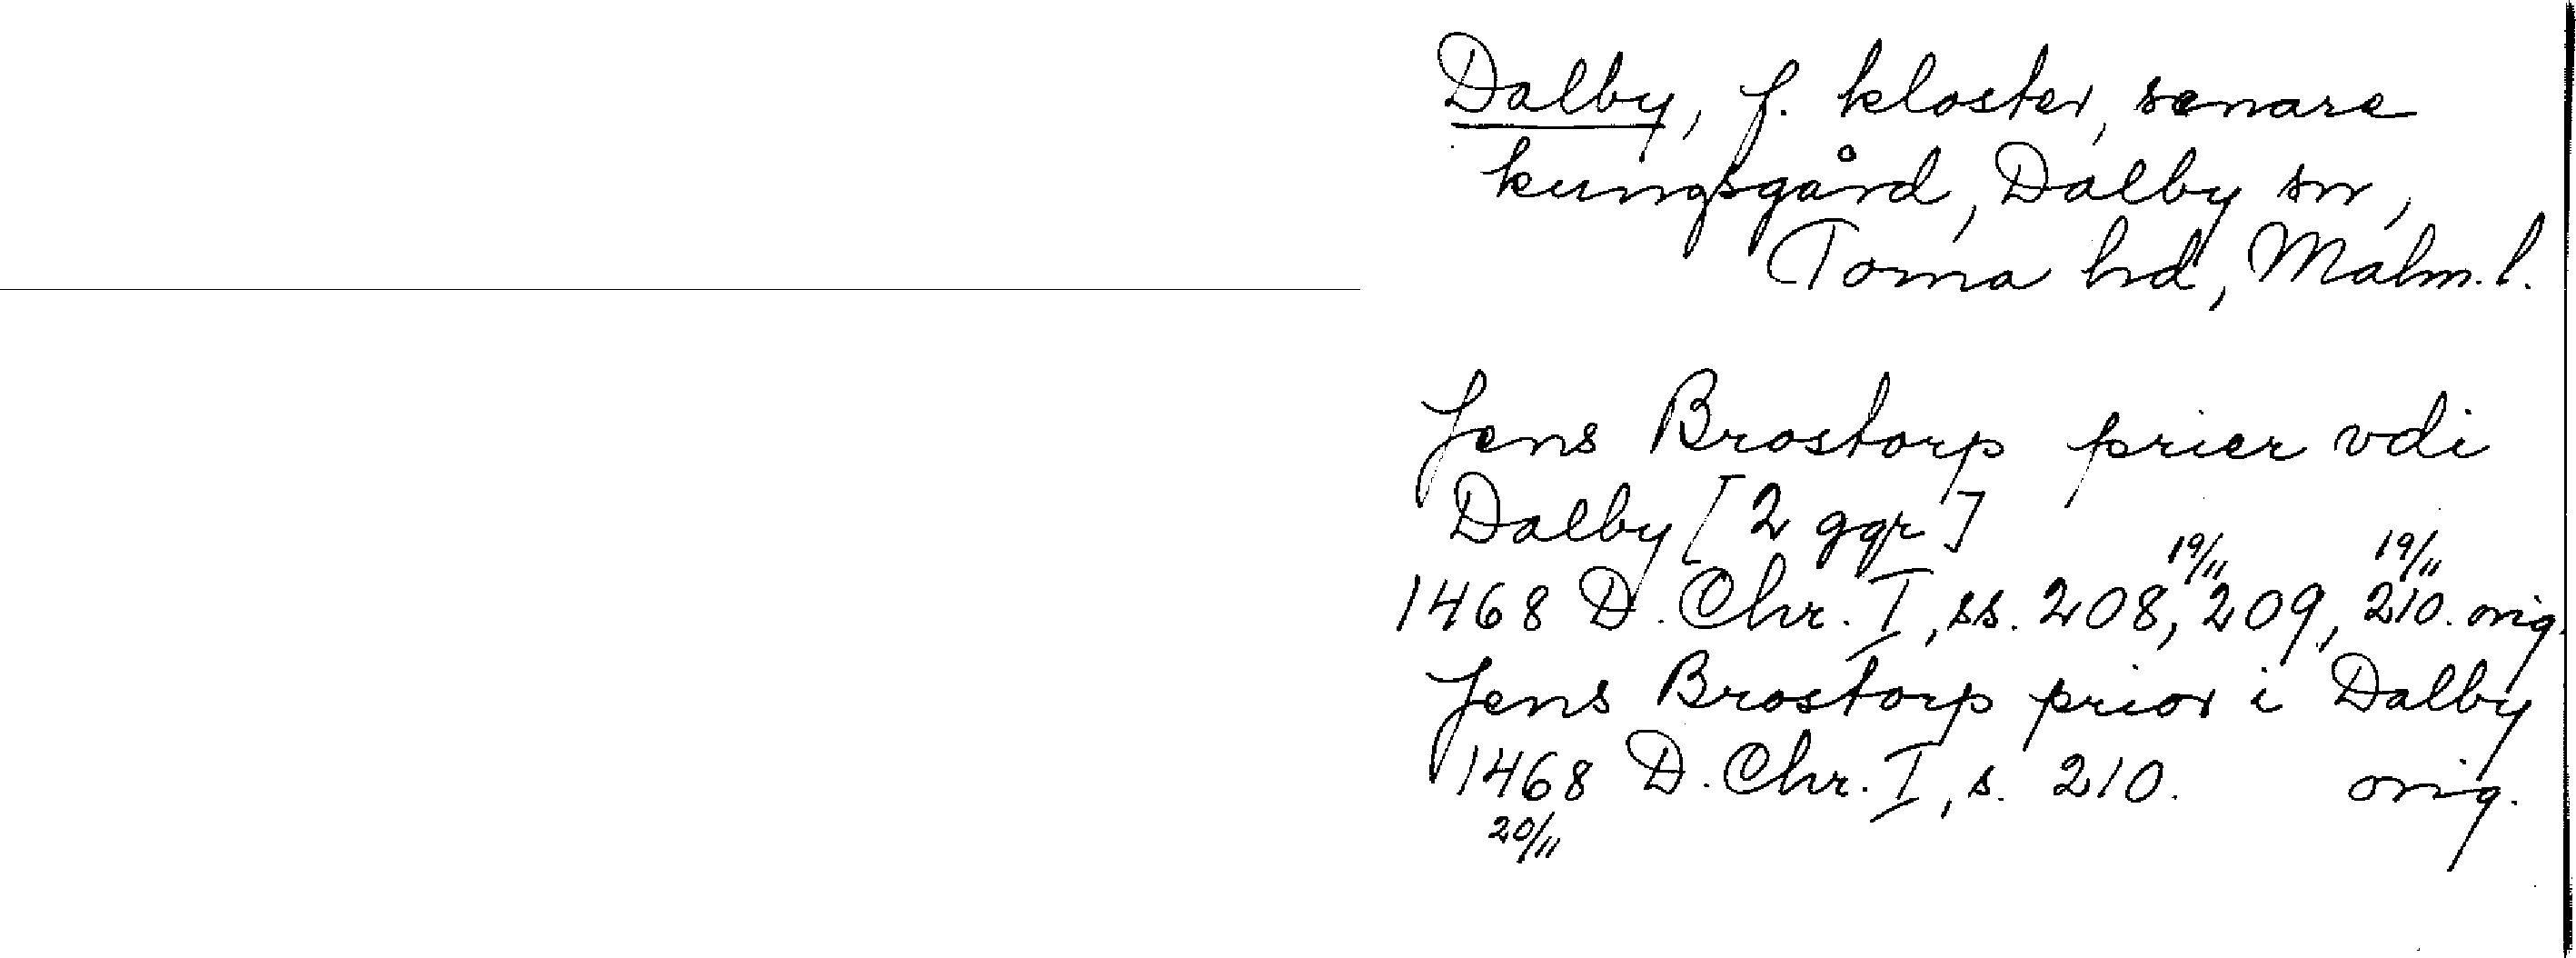 Dalby, f. kloster, senare
kungsgård, Dalby sn,
Torna hd, Malm. l.
Jens Brostorp prier vdi
Dalby [2 ggr]
19/11 19/11
1468 D. Chr. I, ss. 208, 209, 210. orig.
Jens Brostorp prior i Dalby
1468 D. Chr. I, s. 210. orig.
20/11